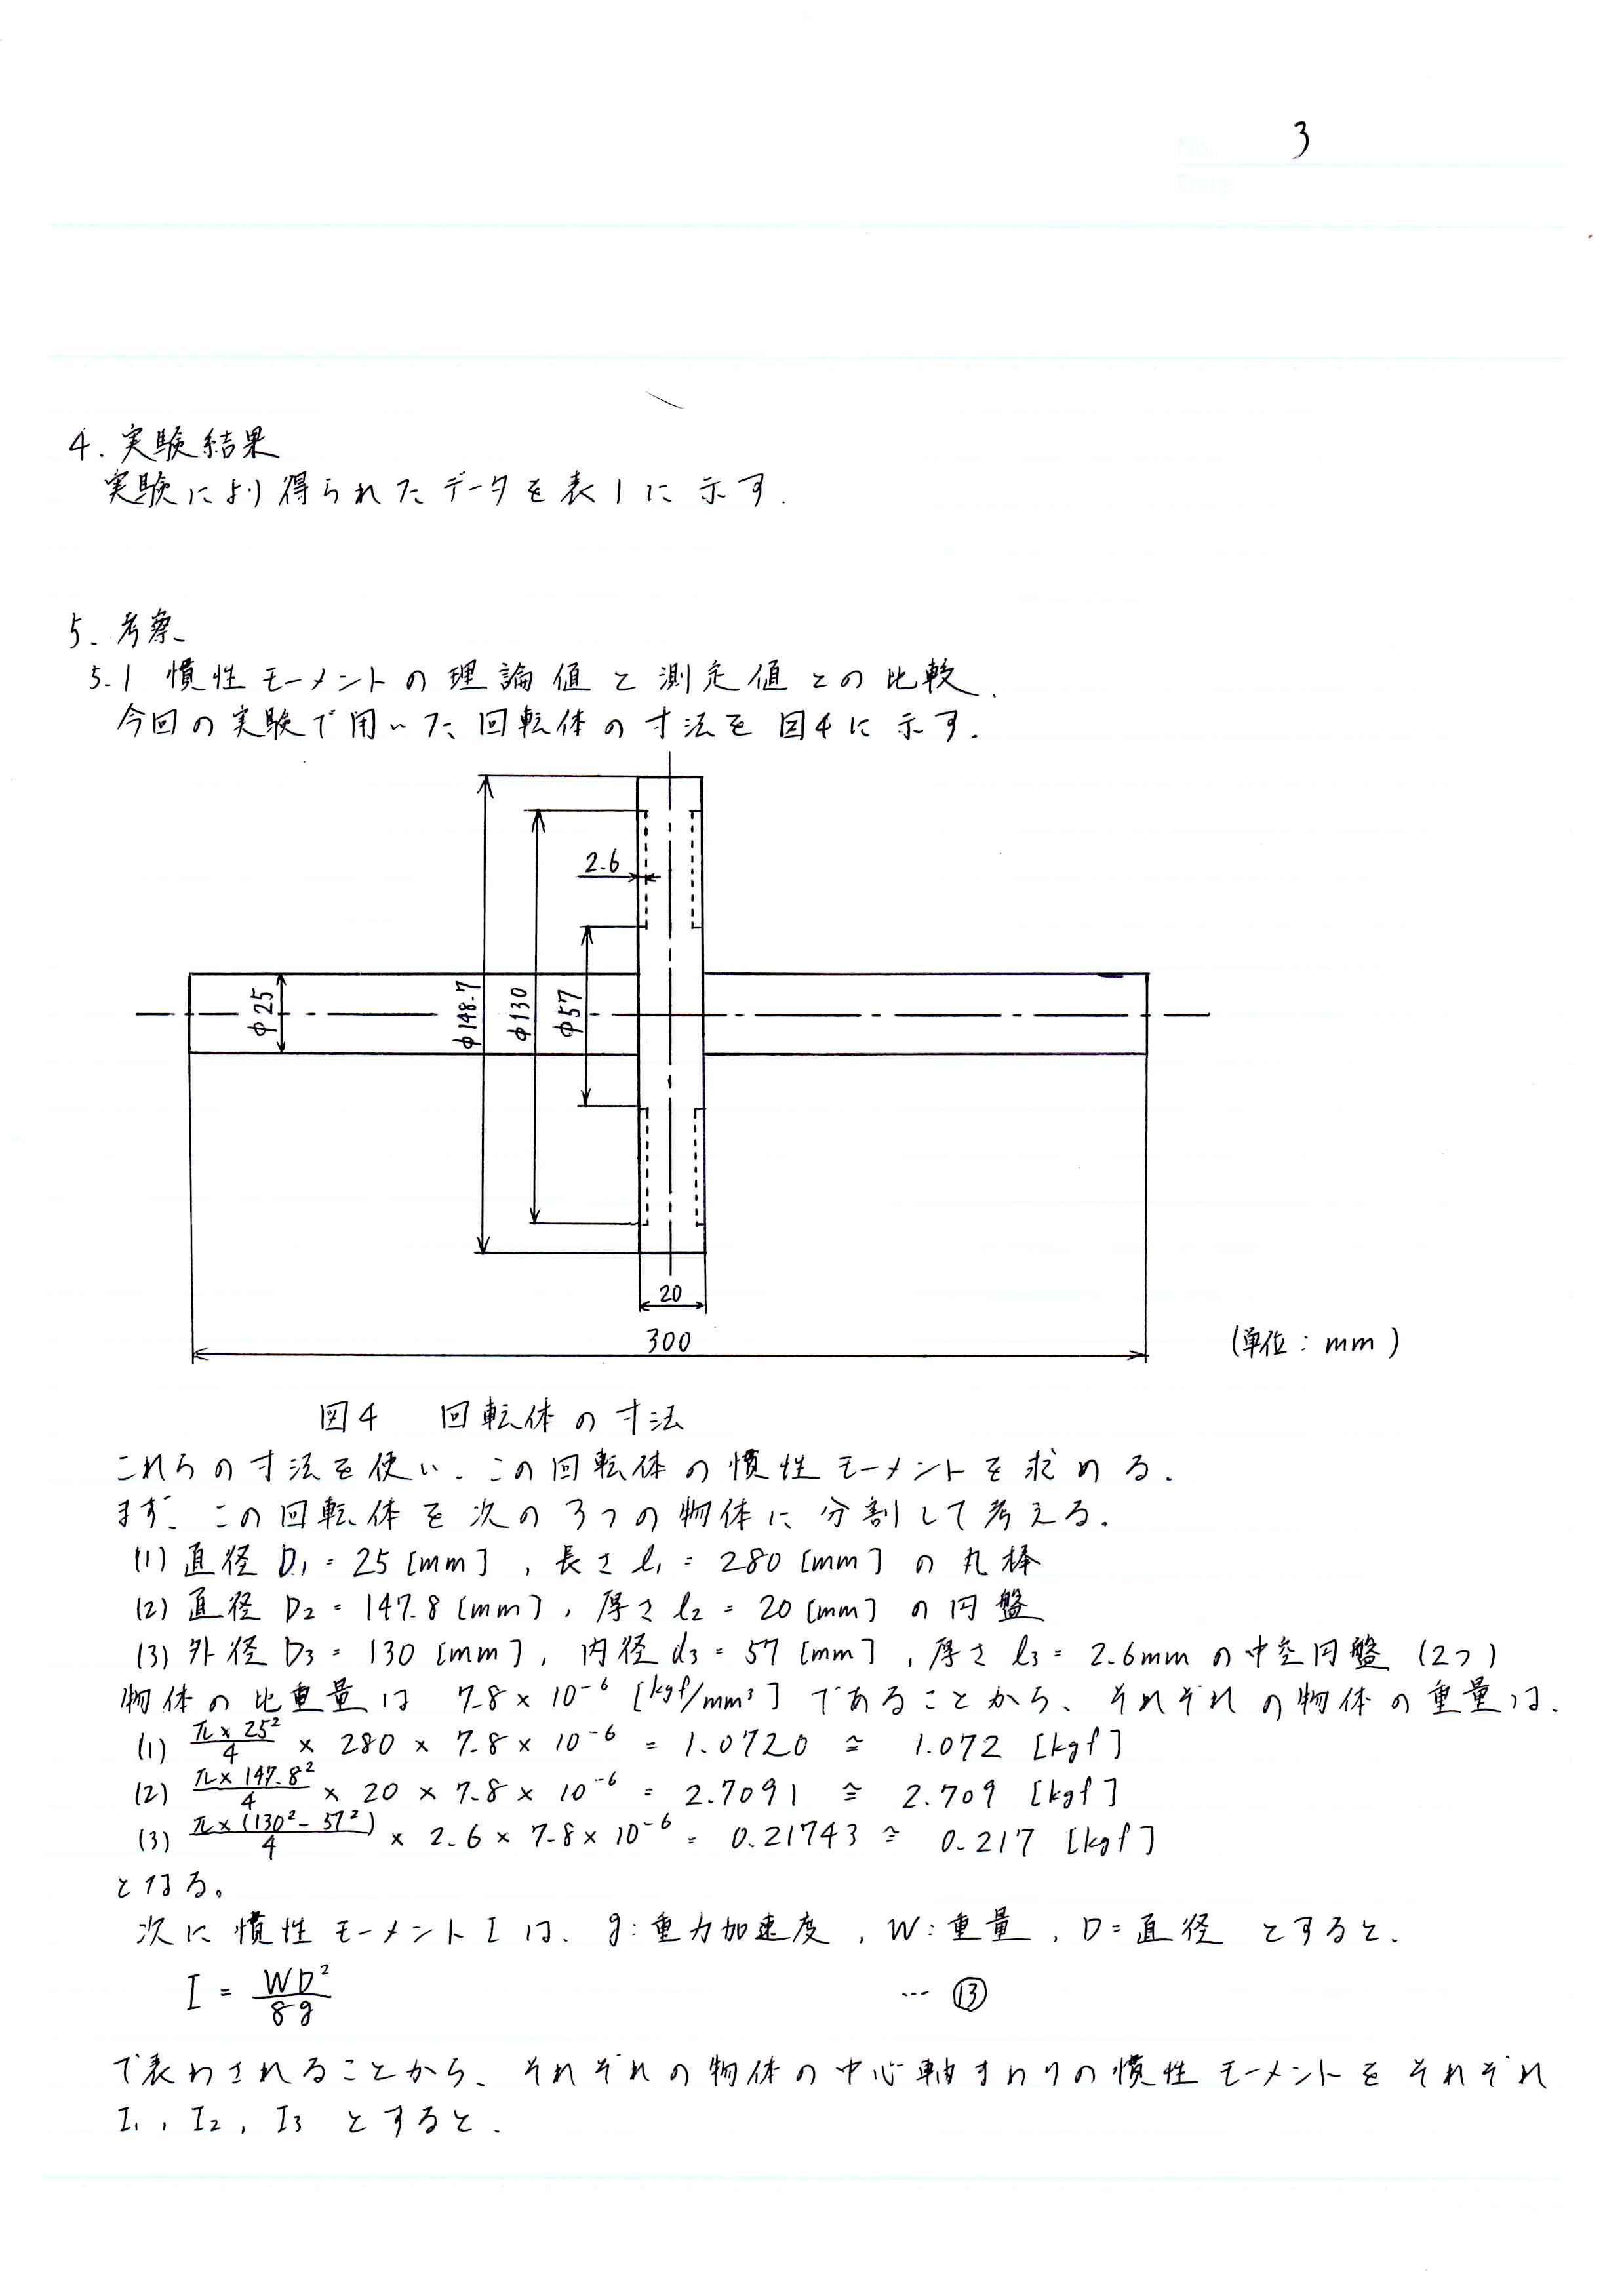 No. 3
Date
4. 実験結果
実験により得られたデータを表1に示す.
5. 考察
5.1 慣性モーメントの理論値と測定値との比較.
今回の実験で用いた回転体の寸法を図4に示す.
2.6
φ25
φ148.7
φ130
φ57
20
300
(単位:mm)
図4 回転体の寸法
これらの寸法を使い、この回転体の慣性モーメントを求める.
まず、この回転体を次の3つの物体に分割して考える.
(1) 直径 D₁ = 25 [mm] , 長さ l₁ = 280 [mm] の丸棒
(2) 直径 D₂ = 147.8 [mm] , 厚さ l₂ = 20 [mm] の円盤
(3) 外径 D₃ = 130 [mm] , 内径 d₃ = 57 [mm] , 厚さ l₃ = 2.6mm の中空円盤 (2つ)
物体の比重量は 7.8 × 10⁻⁶ [kgf/mm³] であることから、それぞれの物体の重量は、
(1) π×25²/4 × 280 × 7.8 × 10⁻⁶ = 1.0720 ≅ 1.072 [kgf]
(2) π×147.8²/4 × 20 × 7.8 × 10⁻⁶ = 2.7091 ≅ 2.709 [kgf]
(3) π×(130²-57²)/4 × 2.6 × 7.8 × 10⁻⁶ = 0.21743 ≅ 0.217 [kgf]
となる。
次に慣性モーメント I は、g:重力加速度 , W:重量 , D=直径 とすると、
I = WD²/8g … ⑬
で表わされることから、それぞれの物体の中心軸まわりの慣性モーメントをそれぞれ
I₁ , I₂ , I₃ とすると、